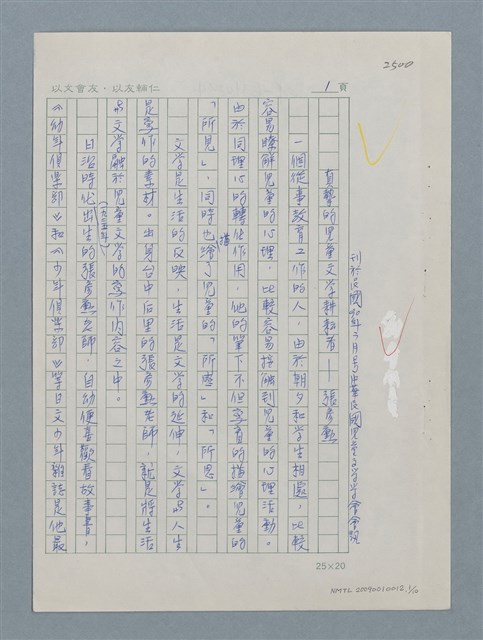 2500
以文會友・以友輔仁
1 頁
刊於民國90年3月號中華民國兒童文學學會會訊
真摯的兒童文學耕耘者——張彥勳
一個從事教育工作的人，由於朝夕和学生相處，比較
容易瞭解児童的心理，比較容易接觸到児童的心理活動。
由於同理心的轉化作用，他的筆下不但写實的描繪児童的
「所見」，同時也描繪了児童的「所感」和「所思」。
文学是生活的反映，生活是文学的延伸，文学與人生
是寫作的素材。出身台中后里的張彥勳老師，就是將生活
與文学融於児童文学的寫作內容之中。
日治時代出生的張彥勳老師，自幼便喜歡看故事書，
（一九二五年）
《幼年俱楽部》和《少年俱楽部》等日文少年雜誌是他最
25×20
NMTL 20090010012, 1/10